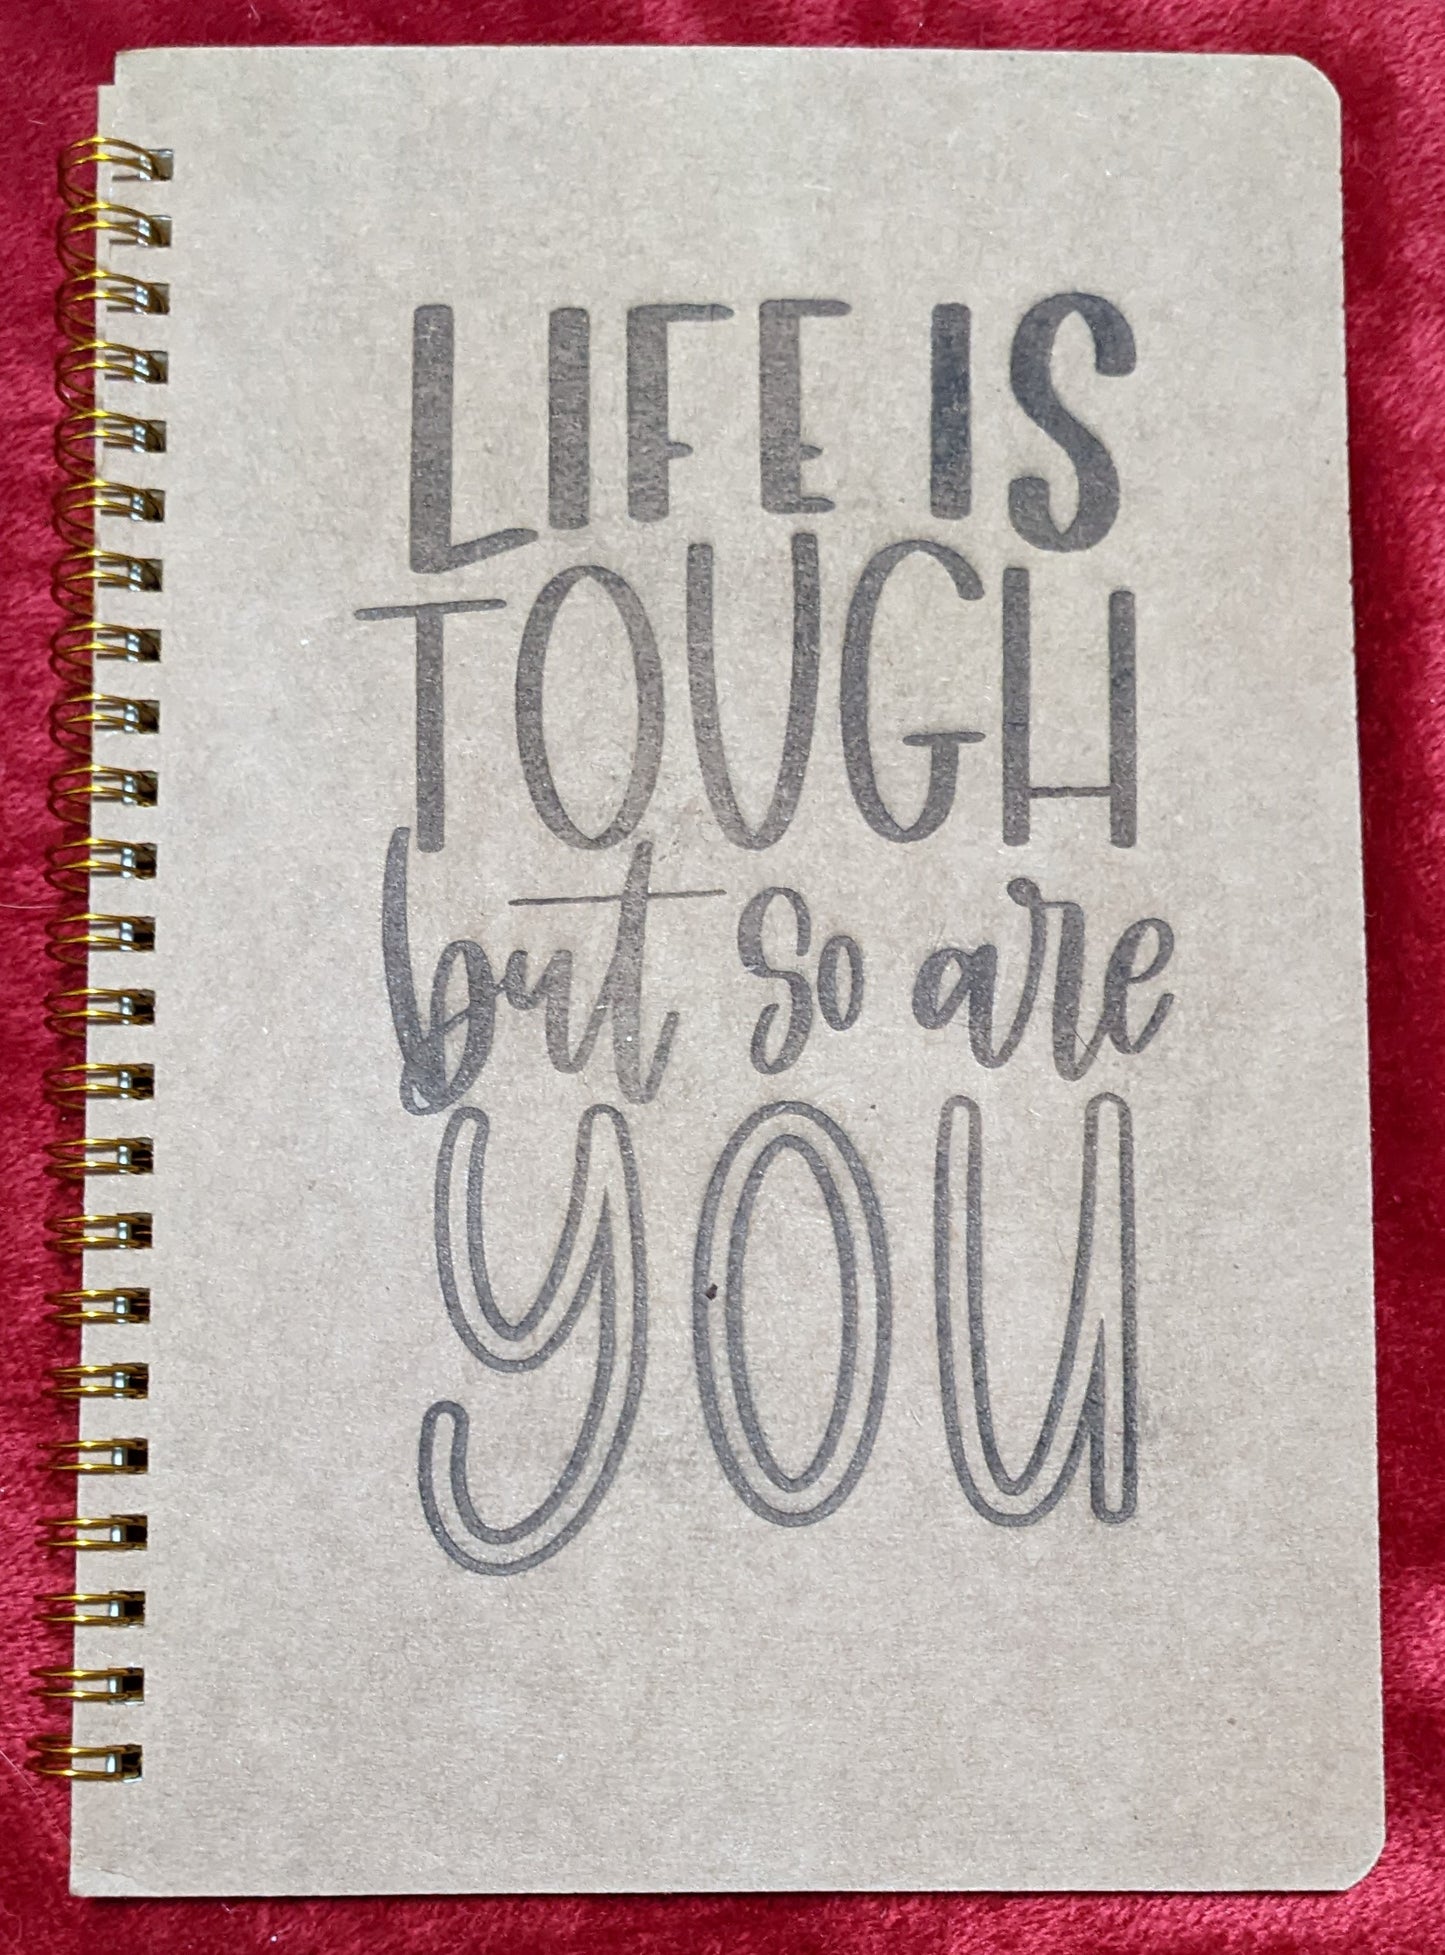 LIFE IS
TOUGH
but so are
YOU